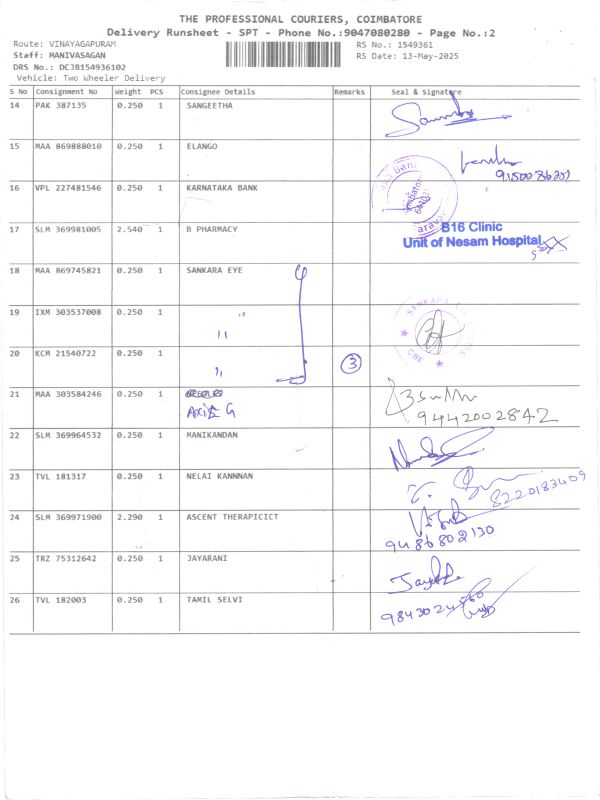 THE PROFESSIONAL COURIERS, COIMBATORE
Delivery Runsheet - SPT - Phone No.:9047080280 - Page No.:2
Route: VINAYAGAPURAM
Staff: MANIVASAGAN
DRS No.: DCJB154936102
Vehicle: Two Wheeler Delivery
RS No.: 1549361
RS Date: 13-May-2025
S No Consignment No Weight PCS Consignee Details Remarks Seal & Signature
14 PAK 387135 0.250 1 SANGEETHA
15 MAA 869888010 0.250 1 ELANGO
16 VPL 227481546 0.250 1 KARNATAKA BANK
17 SLM 369981005 2.540 1 B PHARMACY B16 Clinic
Unit of Nesam Hospital
18 MAA 869745821 0.250 1 SANKARA EYE
19 IXM 303537008 0.250 1 "
20 KCM 21540722 0.250 1 " 3
SANKARA
CBE
21 MAA 303584246 0.250 1
9442002842
22 SLM 369964532 0.250 1 MANIKANDAN
23 TVL 181317 0.250 1 NELAI KANNNAN
8220183409
24 SLM 369971900 2.290 1 ASCENT THERAPICICT
9486802130
25 TRZ 75312642 0.250 1 JAYARANI
26 TVL 182003 0.250 1 TAMIL SELVI